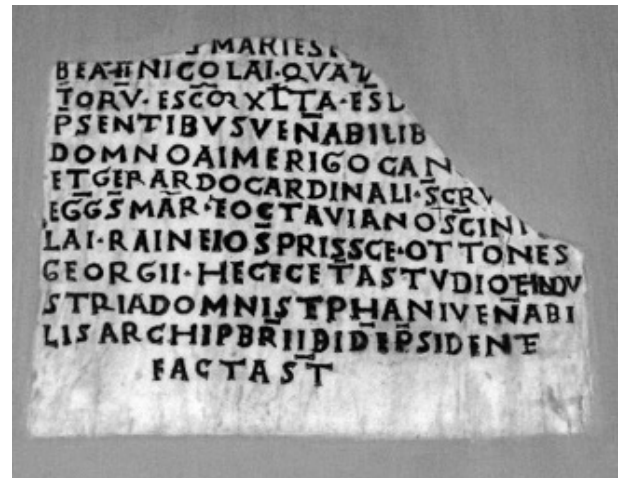 S MARIE S
BEATI NICOLAI·QVA
TORV·ESCOR XLTA·ESL
PSENTIBVS VENABILIB
DOMNO AIMERIGO CAN
ET GERARDO CARDINALI·SCRV
EGGS MAR·EOCTAVIANO SCINI
LAI·RAINEIO S PRISSCE·OTTONE S
GEORGII·HEC ECETA STVDIO ET INDV
STRIA DOMNI STPHANI VENABI
LIS ARCHIPBRI IBIDE PSIDENTE
FACTA ST